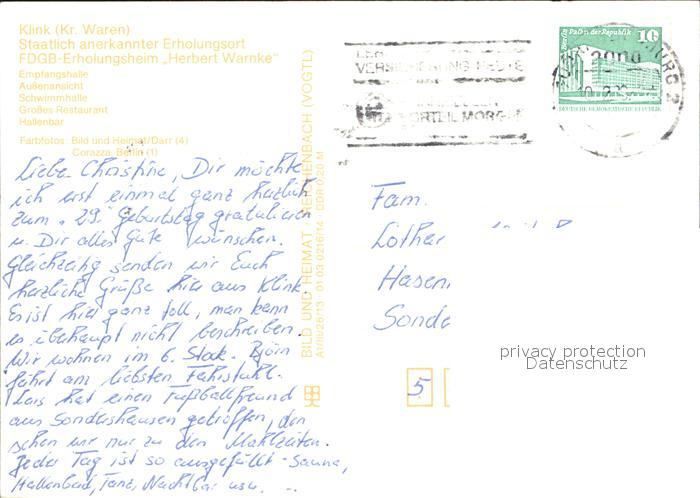 Klink (Kr. Waren)
Staatlich anerkannter Erholungsort
FDGB-Erholungsheim „Herbert Warnke"
Empfangshalle
Außenansicht
Schwimmhalle
Großes Restaurant
Hallenbar
Farbfotos: Bild und Heimat/Darr (4)
Corazza, Berlin (1)
Liebe Christine, Dir möchte
ich erst einmal ganz herzlich
zum 29. Geburtstag gratulieren
u. Dir alles Gute wünschen.
Gleichzeitig senden wir Euch
herzliche Grüße hier aus Klink.
Es ist hier ganz toll, man kann
es überhaupt nicht beschreiben.
Wir wohnen im 6. Stock. Björn
fährt am liebsten Fahrstuhl.
Lars hat einen Fußballfreund
aus Sondershausen getroffen, den
sehen wir nur zu den Mahlzeiten.
Jeder Tag ist so ausgefüllt - Sauna,
Hallenbad, Tanz, Nachtbar usw. ...
BILD UND HEIMAT REICHENBACH (VOGTL)
A1/III/26/13 01 03 0216/14 CDR 0,20 M
VERSICHERUNG HEUTE
VORTEIL MORGEN
Berlin Palast der Republik 10
DEUTSCHE DEMOKRATISCHE REPUBLIK
Fam.
Lothar
Hasen
Sonde
5
privacy protection
Datenschutz